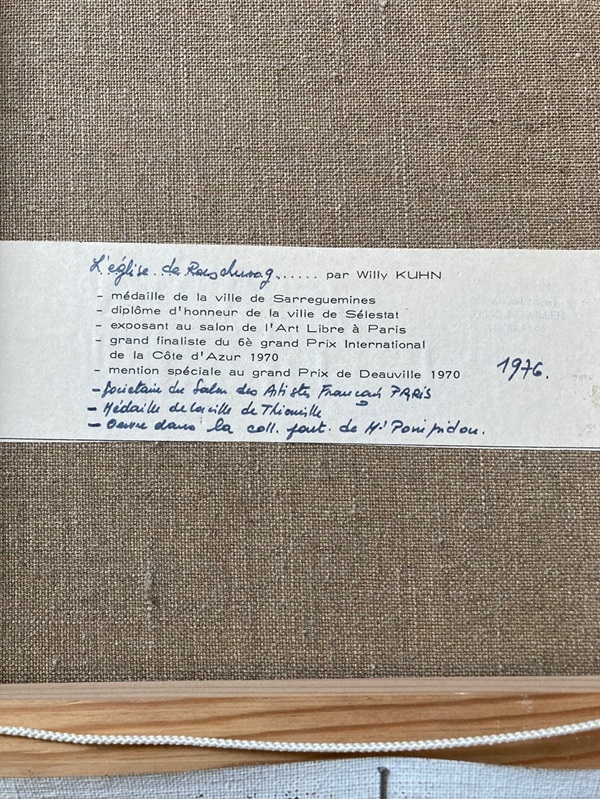 L'église de ...... par Willy KUHN
- médaille de la ville de Sarreguemines
- diplôme d'honneur de la ville de Sélestat
- exposant au salon de l'Art Libre à Paris
- grand finaliste du 6è grand Prix International
de la Côte d'Azur 1970
- mention spéciale au grand Prix de Deauville 1970
1976.
- Societaire du Salon des Artistes Français PARIS
- Médaille de la ville de Thionville
- Oeuvre dans la coll. de Mr Pompidou.